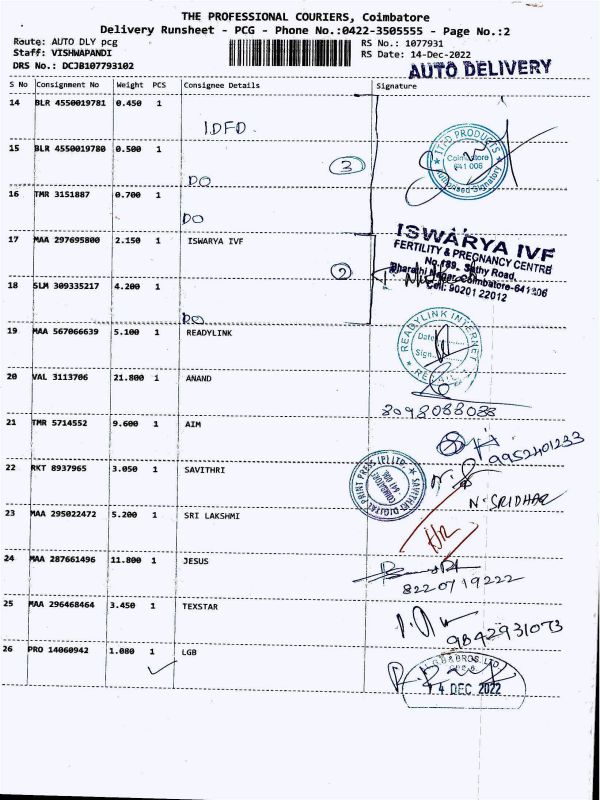 THE PROFESSIONAL COURIERS, Coimbatore
Delivery Runsheet - PCG - Phone No.:0422-3505555 - Page No.:2
Route: AUTO DLY pcg RS No.: 1077931
Staff: VISHWAPANDI RS Date: 14-Dec-2022
DRS No.: DCJB107793102 AUTO DELIVERY
S No Consignment No Weight PCS Consignee Details Signature
14 BLR 4550019781 0.450 1
IDFD.
ITFD PRODUCTS
Coimbatore
641 006
Authorised Signatory
15 BLR 4550019780 0.500 1
3
DO
16 TMR 3151887 0.700 1
DO
17 MAA 297695800 2.150 1 ISWARYA IVF
ISWARYA IVF
FERTILITY & PREGNANCY CENTRE
No.189, Sathy Road,
Bharathi Nagar, Coimbatore-641006
Cell: 90201 22012
2
18 SLM 309335217 4.200 1
DO
19 MAA 567066639 5.100 1 READYLINK
READYLINK INTERNET
Date
Sign
20 VAL 3113706 21.800 1 ANAND
8098088088
21 TMR 5714552 9.600 1 AIM
9952401233
22 RKT 8937965 3.050 1 SAVITHRI
SAVITHRI DIGITAL PRINT PRESS (P) LTD
COIMBATORE
N. SRIDHAR
23 MAA 295022472 5.200 1 SRI LAKSHMI
24 MAA 287661496 11.800 1 JESUS
8220719222
25 MAA 296468464 3.450 1 TEXSTAR
9842931073
26 PRO 14060942 1.080 1 LGB
L.G.B & BROS. LTD
4 DEC 2022